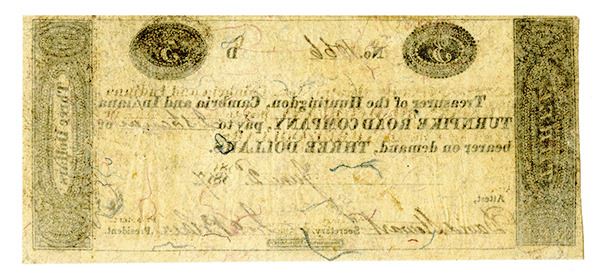 3 No. D 3
Treasurer of the Huntingdon, Cambria and Indiana
TURNPIKE ROAD COMPANY, pay to or
bearer on demand, THREE DOLLARS.
June
Attest,
David Stewart Secretary President.
Three Dollars